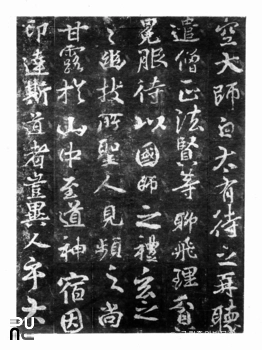 空大師白大有待之再
遣僧正法賢等聊飛理
冕服待以國師之禮玄之
之遊投所聖人見頻之尚
甘露於山中玄道神宿因
印達斯道者豈異人乎大